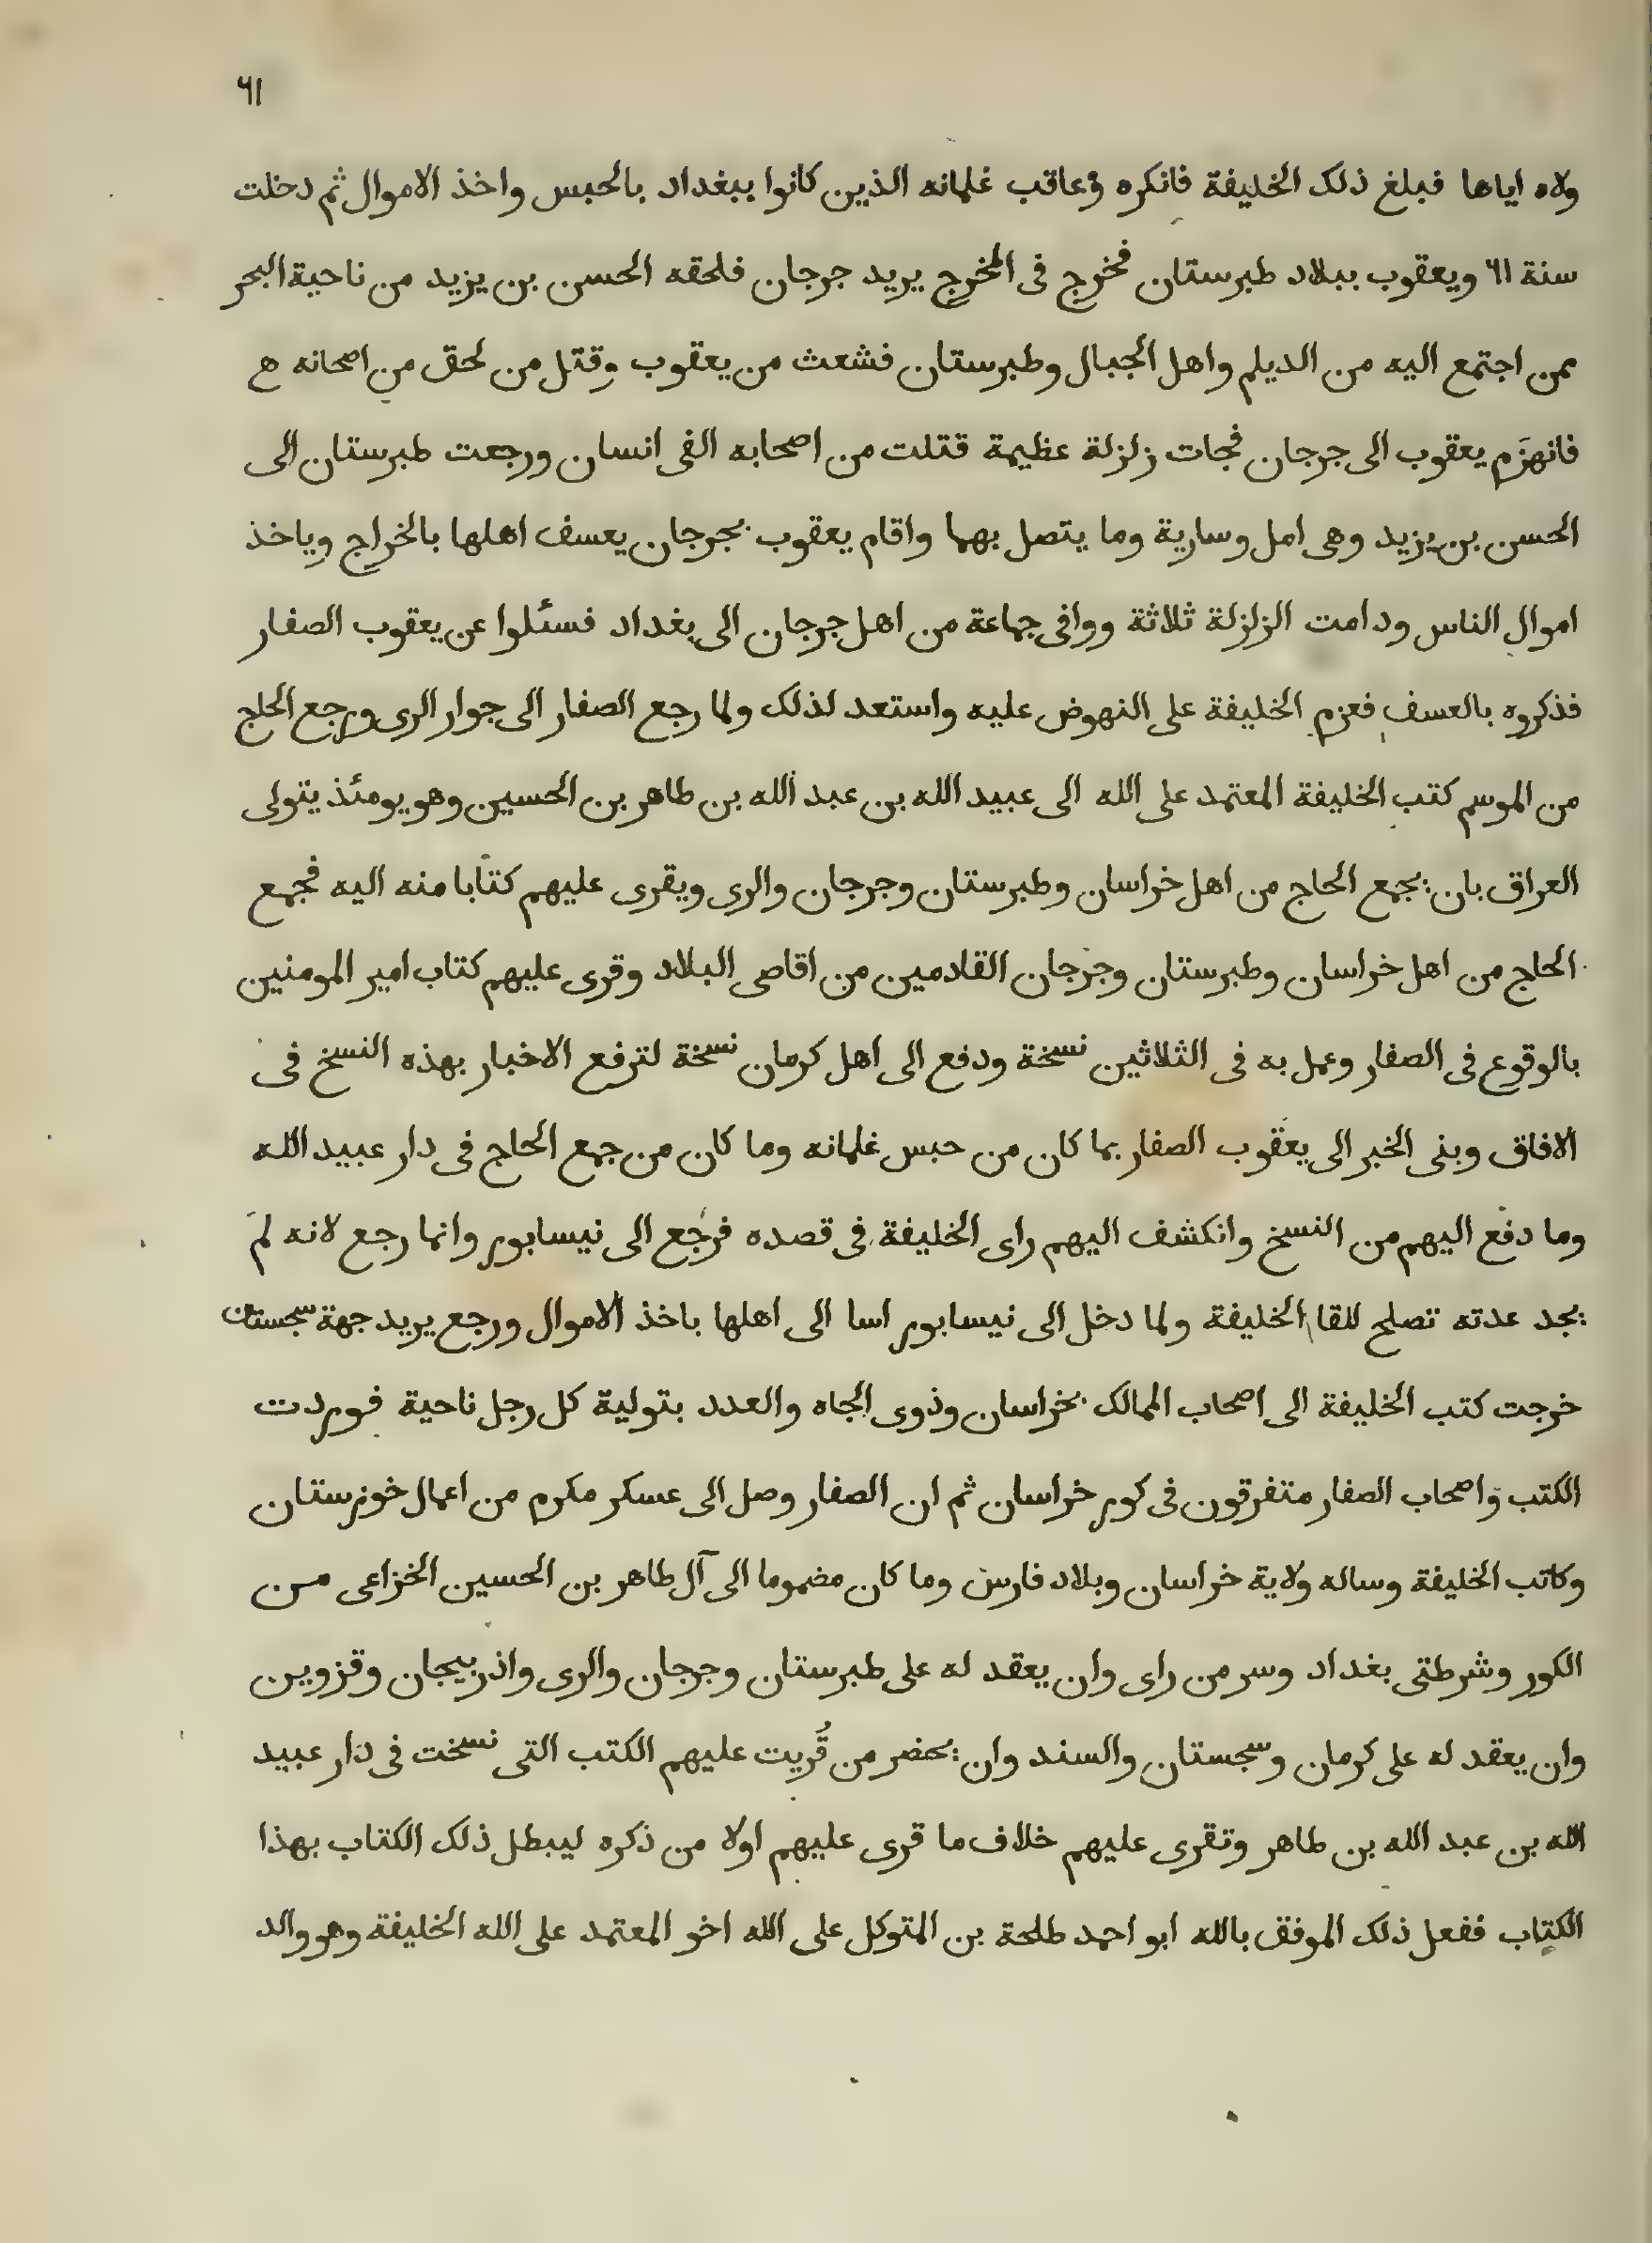 ٦١
ولاه اياها فبلغ ذلك الخليفة فانكره وعاقب غلمانه الذين كانوا ببغداد بالحبس واخذ الاموال ثم دخلت
سنة ٦١ ويعقوب ببلاد طبرستان فخرج فى المخرج يريد جرجان فلحقه الحسن بن يزيد من ناحية البحر
بمن اجتمع اليه من الديلم واهل الجبال وطبرستان فشعث من يعقوب وقتل من لحق من اصحابه
فانهزم يعقوب الى جرجان فجات زلزلة عظيمة قتلت من اصحابه الفى انسان ورجعت طبرستان الى
الحسن بن يزيد وهى امل وسارية وما يتصل بهما واقام يعقوب بجرجان يعسف اهلها بالخراج وياخذ
اموال الناس ودامت الزلزلة ثلاثة ووافى جماعة من اهل جرجان الى بغداد فسئلوا عن يعقوب الصفار
فذكروه بالعسف فعزم الخليفة على النهوض عليه واستعد لذلك ولما رجع الصفار الى جوار الرى ورجع الحاج
من الموسم كتب الخليفة المعتمد على الله الى عبيد الله بن عبد الله بن طاهر بن الحسين وهو يومئذ يتولى
العراق بان يجمع الحاج من اهل خراسان وطبرستان وجرجان والرى ويقرى عليهم كتابا منه اليه فجمع
الحاج من اهل خراسان وطبرستان وجرجان القادمين من اقاصى البلاد وقرى عليهم كتاب امير المومنين
بالوقوع فى الصفار وعمل به فى الثلاثين نسخة ودفع الى اهل كرمان نسخة لترفع الاخبار بهذه النسخ فى
الافاق وبنى الخبر الى يعقوب الصفار بما كان من حبس غلمانه وما كان من جمع الحاج فى دار عبيد الله
وما دفع اليهم من النسخ وانكشف اليهم راى الخليفة فى قصده فرجع الى نيسابور وانما رجع لانه لم
يجد عدته تصلح للقا الخليفة ولما دخل الى نيسابور اسا الى اهلها باخذ الاموال ورجع يريد جهة سجستان
خرجت كتب الخليفة الى اصحاب الممالك بخراسان وذوى الجاه والعدد بتولية كل رجل ناحية فوردت
الكتب واصحاب الصفار متفرقون فى كور خراسان ثم ان الصفار وصل الى عسكر مكرم من اعمال خوزستان
وكاتب الخليفة وساله ولاية خراسان وبلاد فارس وما كان مضموما الى آل طاهر بن الحسين الخزاعى من
الكور وشرطتى بغداد وسر من راى وان يعقد له على طبرستان وجرجان والرى واذربيجان وقزوين
وان يعقد له على كرمان وسجستان والسند وان يحضر من قُريت عليهم الكتب التى نسخت فى دار عبيد
الله بن عبد الله بن طاهر وتقرى عليهم خلاف ما قرى عليهم اولا من ذكره ليبطل ذلك الكتاب بهذا
الكتاب ففعل ذلك الموفق بالله ابو احمد طلحة بن المتوكل على الله اخو المعتمد على الله الخليفة وهو والد